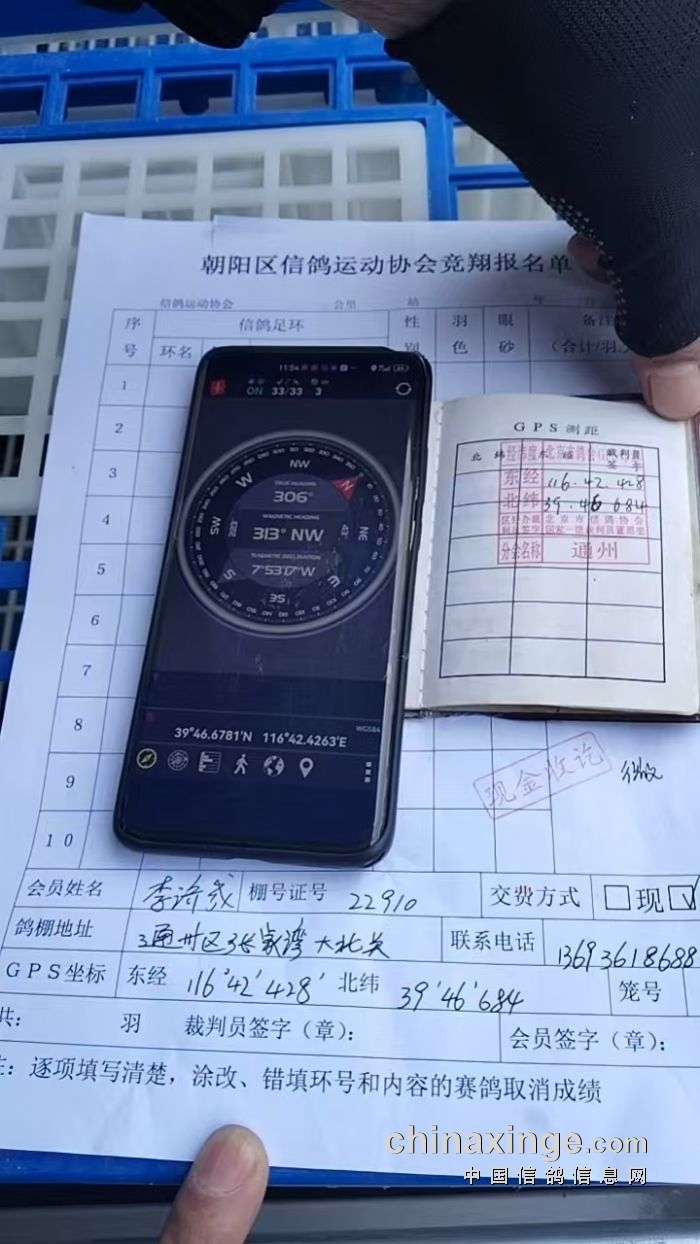 朝阳区信鸽运动协会竞翔报名单
信鸽运动协会 公里 站 年
序号 信鸽足环 性别 羽色 眼砂 备注
环名 (合计/羽
1
2
3
4
5
6
7
8
9
10
11:54
ON 33/33 3
NW
W N
TRUE HEADING
306°
MAGNETIC HEADING
313° NW
SW NE
MAGNETIC DECLINATION
7°53'17"W
S E
35
WGS84
39°46.6781'N 116°42.4263'E
GPS测距
北纬 裁判员签字
东经 116.42.428
北纬 39.46.684
分会名称 通州
现金收讫
会员姓名 棚号证号 22910 交费方式 □现 ☑
鸽棚地址 通州区张家湾大北关 联系电话 13693618688
GPS坐标 东经 116°42'428' 北纬 39'46'684 笼号
共: 羽 裁判员签字(章): 会员签字(章):
注: 逐项填写清楚,涂改、错填环号和内容的赛鸽取消成绩
chinaxinge.com
中国信鸽信息网